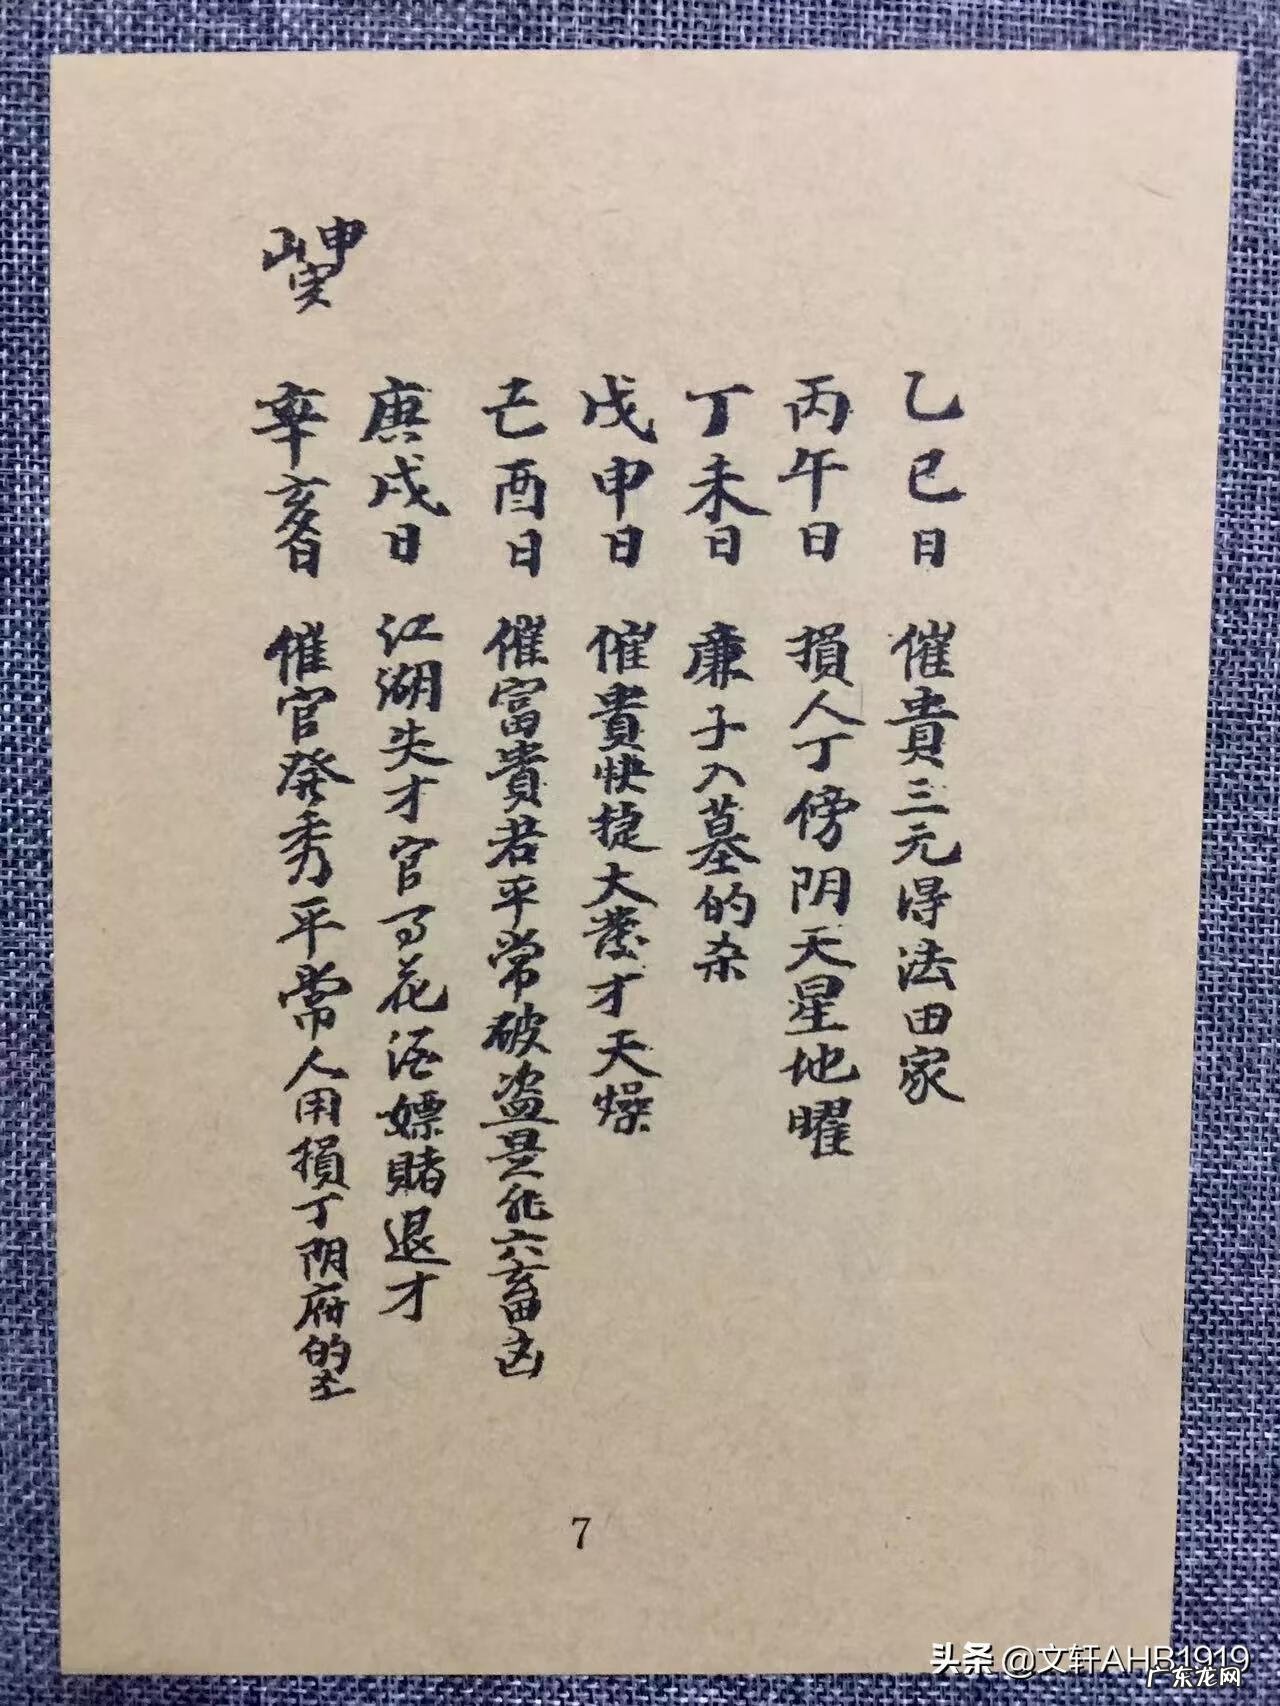 乙巳日 催貴三元得法田家
丙午日 損人丁傍阴天星地曜
丁未日 廉子入墓的杀
戊申日 催貴快捷大發才天燥
己酉日 催富貴若平常破盗是非六畜凶
庚戌日 江湖失才官司花酒嫖賭退才
辛亥日 催官發秀平常人用損丁阴府的
山申寅
7
头条 @文轩AHB1919
广东龙网